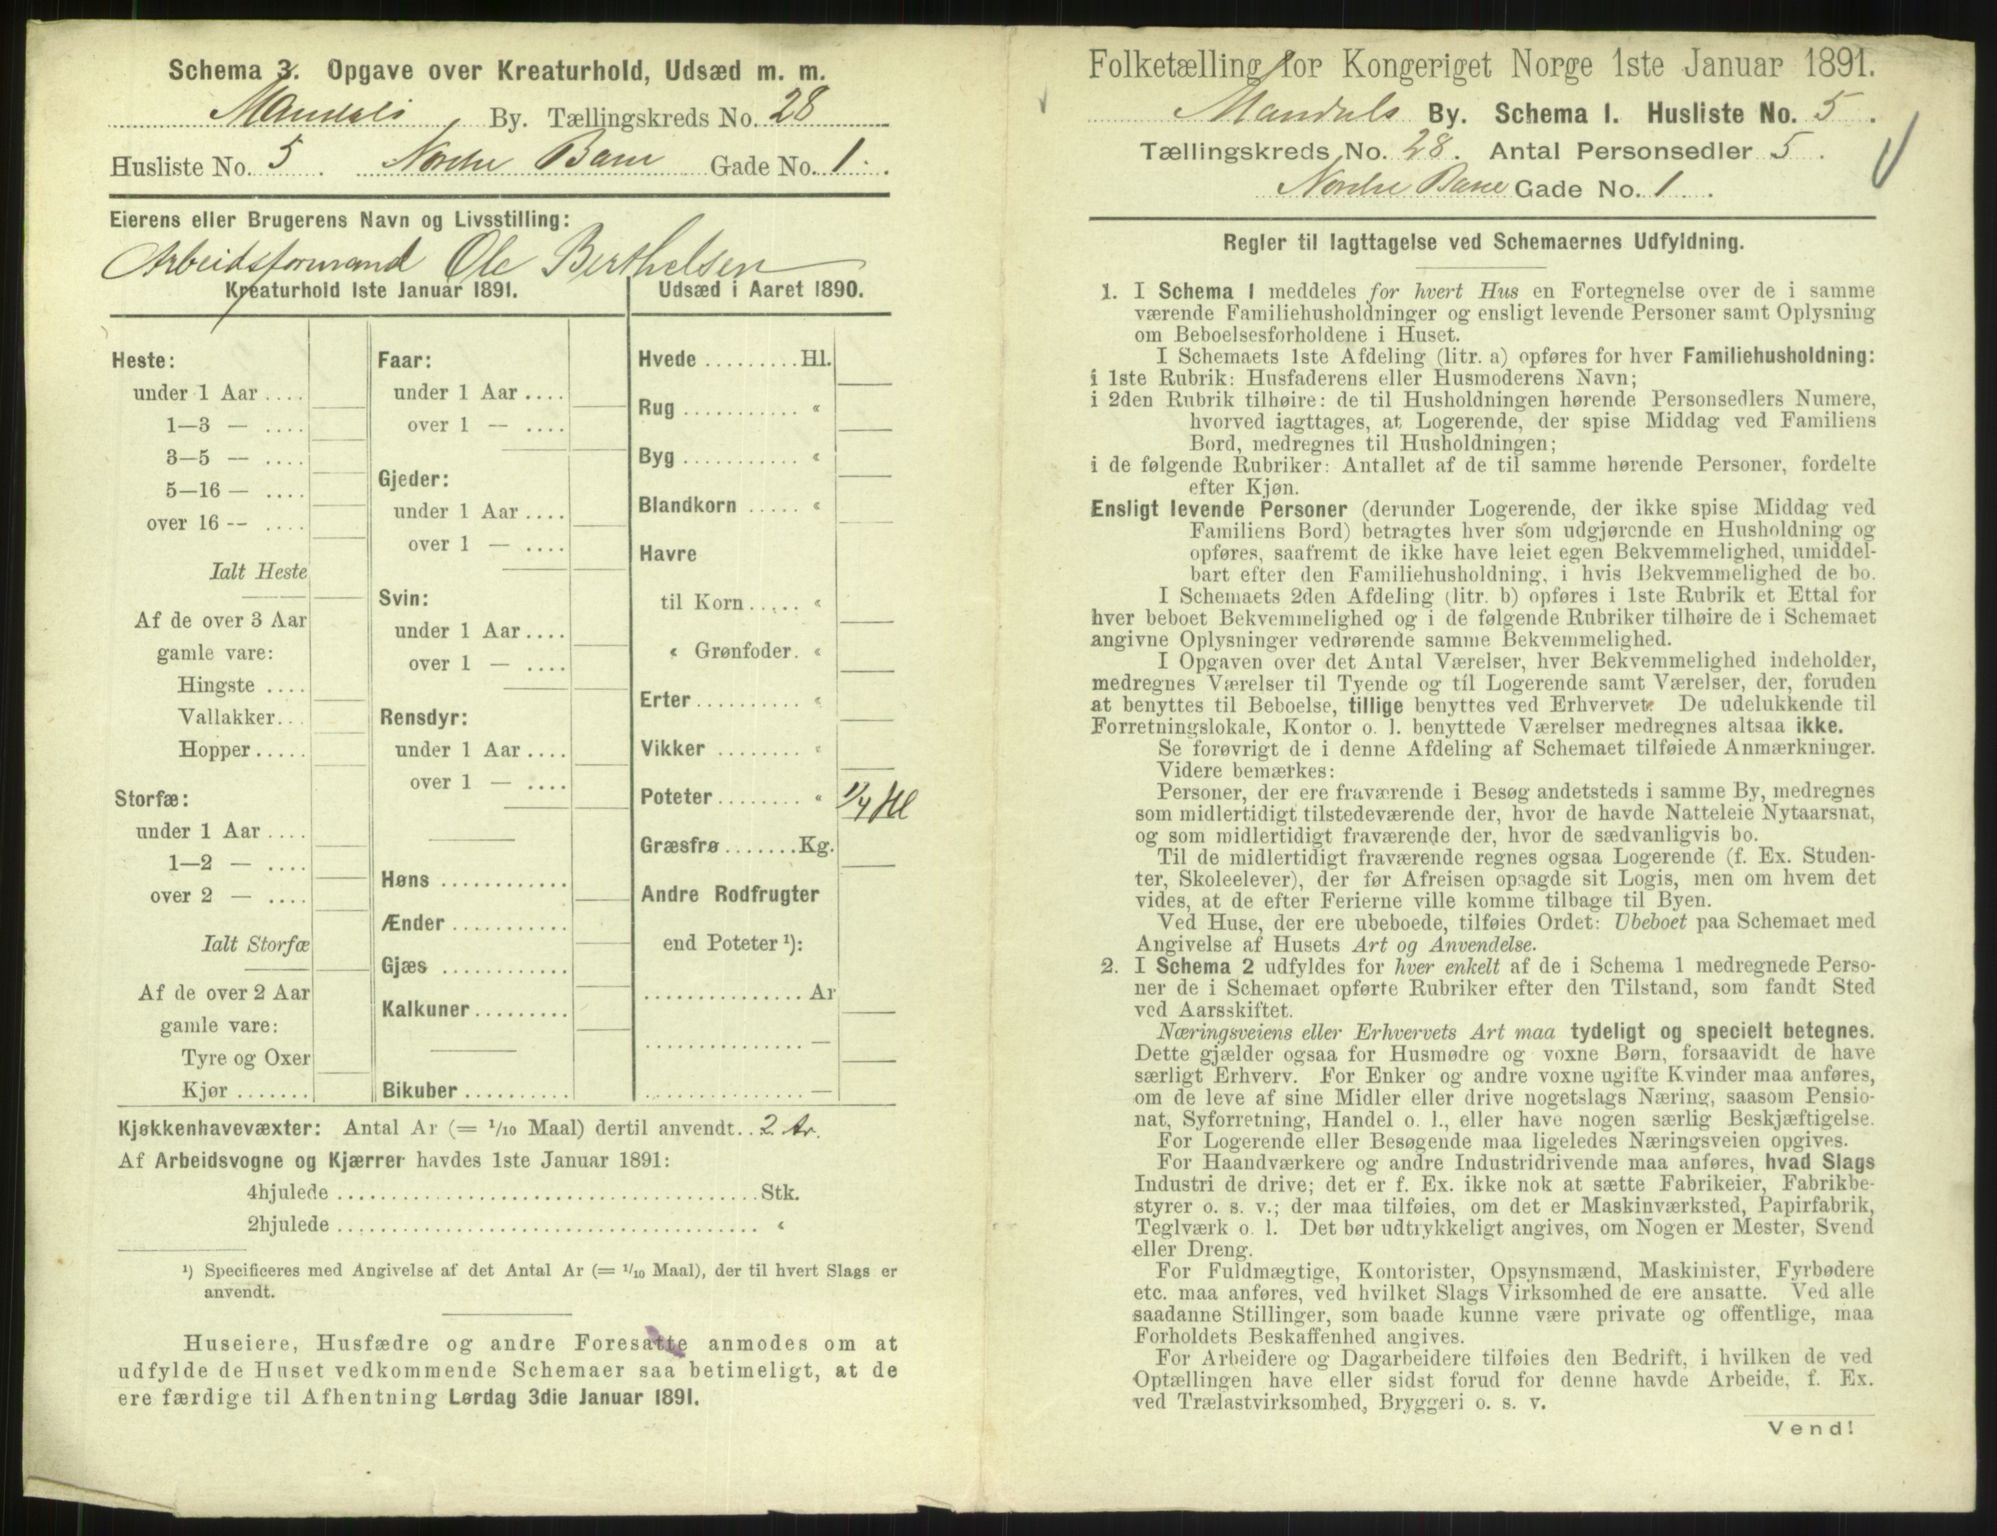 Schema 3. Opgave over Kreaturhold, Udsæd m. m.
Mandals By. Tællingskreds No. 28
Husliste No. 5. Nordre Bane Gade No. 1.
Eierens eller Brugerens Navn og Livsstilling:
Arbeidsformand Ole Berthelsen
Kreaturhold 1ste Januar 1891.
Heste:
under 1 Aar ....
1—3 — ....
3—5 — ....
5—16 — ....
over 16 -- ....
Ialt Heste
Af de over 3 Aar
gamle vare:
Hingste ....
Vallakker...
Hopper.....
Storfæ:
under 1 Aar ....
1—2 — ....
over 2 — ....
Ialt Storfæ
Af de over 2 Aar
gamle vare:
Tyre og Oxer
Kjør.......
Faar:
under 1 Aar ....
over 1 — ....
Gjeder:
under 1 Aar ....
over 1 — ....
Svin:
under 1 Aar ....
over 1 — ....
Rensdyr:
under 1 Aar ....
over 1 — ....
Høns ............
Ænder ...........
Gjæs ............
Kalkuner.........
Bikuber..........
Udsæd i Aaret 1890.
Hvede .........Hl.
Rug .......... “
Byg .......... “
Blandkorn ..... “
Havre
til Korn..... “
“ Grønfoder. “
Erter.......... “
Vikker ........ “
Poteter........ “ 1/4 Hl
Græsfrø .......Kg.
Andre Rodfrugter
end Poteter ¹):
...............Ar
............... —
............... —
Kjøkkenhavevæxter: Antal Ar (= 1/10 Maal) dertil anvendt.. 2 Ar.
Af Arbeidsvogne og Kjærrer havdes 1ste Januar 1891:
4hjulede ........................................Stk.
2hjulede ........................................ “
¹) Specificeres med Angivelse af det Antal Ar (= 1/10 Maal), der til hvert Slags er
anvendt.
Huseiere, Husfædre og andre Foresatte anmodes om at
udfylde de Huset vedkommende Schemaer saa betimeligt, at de
ere færdige til Afhentning Lørdag 3die Januar 1891.
Folketælling for Kongeriget Norge 1ste Januar 1891.
Mandals By. Schema I. Husliste No. 5.
Tællingskreds No. 28. Antal Personsedler 5.
Nordre Bane Gade No. 1.
Regler til Iagttagelse ved Schemaernes Udfyldning.
1. I Schema 1 meddeles for hvert Hus en Fortegnelse over de i samme
værende Familiehusholdninger og ensligt levende Personer samt Oplysning
om Beboelsesforholdene i Huset.
I Schemaets 1ste Afdeling (litr. a) opføres for hver Familiehusholdning:
i 1ste Rubrik: Husfaderens eller Husmoderens Navn;
i 2den Rubrik tilhøire: de til Husholdningen hørende Personsedlers Numere,
hvorved iagttages, at Logerende, der spise Middag ved Familiens
Bord, medregnes til Husholdningen;
i de følgende Rubriker: Antallet af de til samme hørende Personer, fordelte
efter Kjøn.
Ensligt levende Personer (derunder Logerende, der ikke spise Middag ved
Familiens Bord) betragtes hver som udgjørende en Husholdning og
opføres, saafremt de ikke have leiet egen Bekvemmelighed, umiddel-
bart efter den Familiehusholdning, i hvis Bekvemmelighed de bo.
I Schemaets 2den Afdeling (litr. b) opføres i 1ste Rubrik et Ettal for
hver beboet Bekvemmelighed og i de følgende Rubriker tilhøire de i Schemaet
angivne Oplysninger vedrørende samme Bekvemmelighed.
I Opgaven over det Antal Værelser, hver Bekvemmelighed indeholder,
medregnes Værelser til Tyende og til Logerende samt Værelser, der, foruden
at benyttes til Beboelse, tillige benyttes ved Erhvervet. De udelukkende til
Forretningslokale, Kontor o. l. benyttede Værelser medregnes altsaa ikke.
Se forøvrigt de i denne Afdeling af Schemaet tilføiede Anmærkninger.
Videre bemærkes:
Personer, der ere fraværende i Besøg andetsteds i samme By, medregnes
som midlertidigt tilstedeværende der, hvor de havde Natteleie Nytaarsnat,
og som midlertidigt fraværende der, hvor de sædvanligvis bo.
Til de midlertidigt fraværende regnes ogsaa Logerende (f. Ex. Studen-
ter, Skoleelever), der før Afreisen opsagde sit Logis, men om hvem det
vides, at de efter Ferierne ville komme tilbage til Byen.
Ved Huse, der ere ubeboede, tilføies Ordet: Ubeboet paa Schemaet med
Angivelse af Husets Art og Anvendelse.
2. I Schema 2 udfyldes for hver enkelt af de i Schema 1 medregnede Perso-
ner de i Schemaet opførte Rubriker efter den Tilstand, som fandt Sted
ved Aarsskiftet.
Næringsveiens eller Erhvervets Art maa tydeligt og specielt betegnes.
Dette gjælder ogsaa for Husmødre og voxne Børn, forsaavidt de have
særligt Erhverv. For Enker og andre voxne ugifte Kvinder maa anføres,
om de leve af sine Midler eller drive nogetslags Næring, saasom Pensio-
nat, Syforretning, Handel o. l., eller have nogen særlig Beskjæftigelse.
For Logerende eller Besøgende maa ligeledes Næringsveien opgives.
For Haandværkere og andre Industridrivende maa anføres, hvad Slags
Industri de drive; det er f. Ex. ikke nok at sætte Fabrikeier, Fabrikbe-
styrer o. s. v.; der maa tilføies, om det er Maskinværksted, Papirfabrik,
Teglværk o. l. Det bør udtrykkeligt angives, om Nogen er Mester, Svend
eller Dreng.
For Fuldmægtige, Kontorister, Opsynsmænd, Maskinister, Fyrbødere
etc. maa anføres, ved hvilket Slags Virksomhed de ere ansatte. Ved alle
saadanne Stillinger, som baade kunne være private og offentlige, maa
Forholdets Beskaffenhed angives.
For Arbeidere og Dagarbeidere tilføies den Bedrift, i hvilken de ved
Optællingen have eller sidst forud for denne havde Arbeide, f. Ex.
ved Trælastvirksomhed, Bryggeri o. s. v.
Vend!